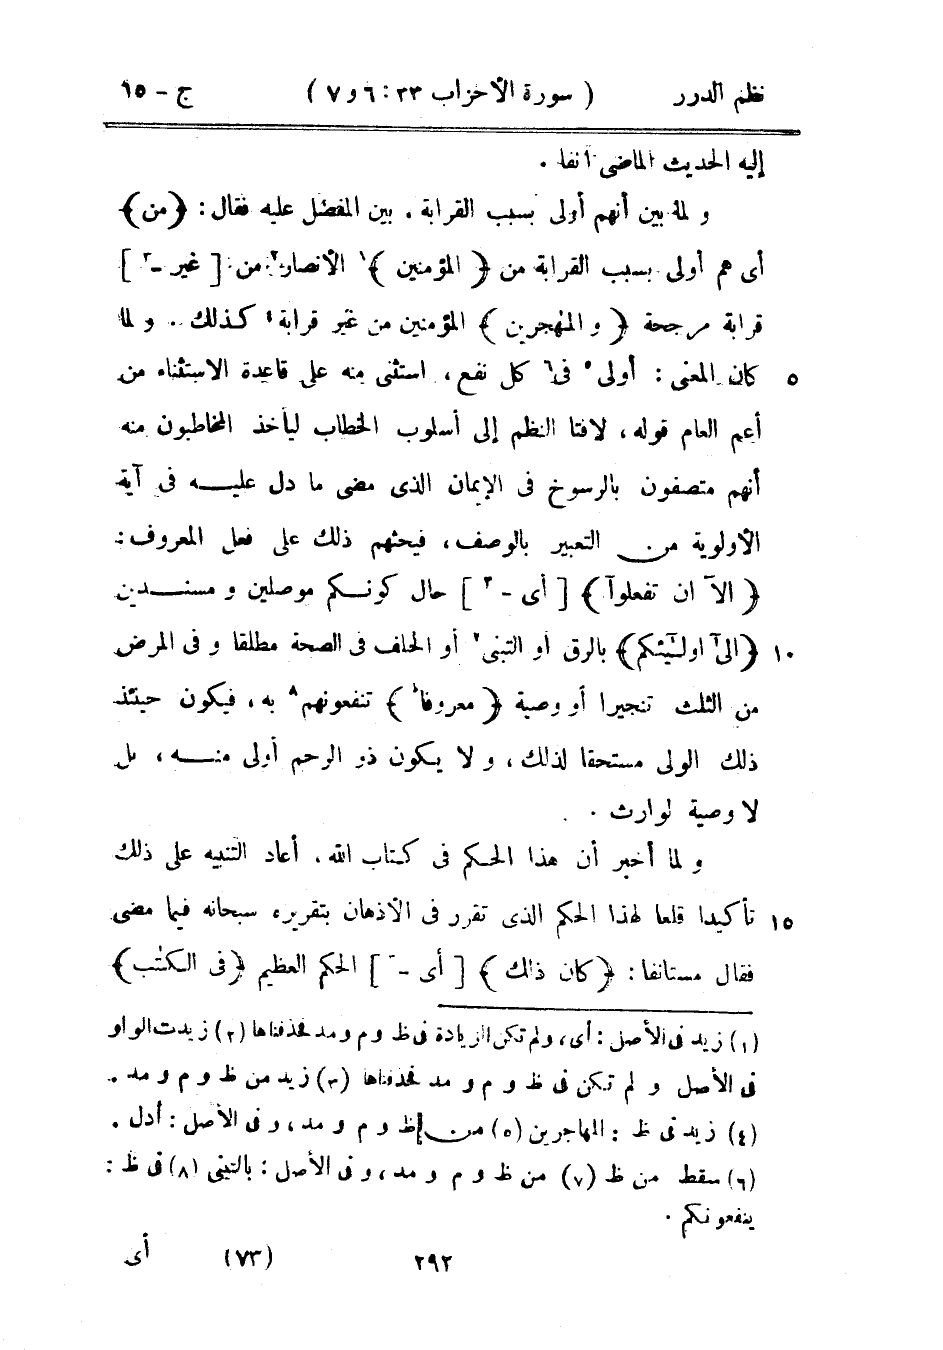 نظم الدرر ( سورة الأحزاب ٣٣ : ٦ و ٧ ) ج - ١٥
إليه الحديث الماضى آنفا .
و لما بين أنهم أولى بسبب القرابة . بين المفضل عليه فقال : ﴿من﴾
أى هم أولى بسبب القرابة من ﴿ المؤمنين ﴾١ الأنصار٢ من [ غير -٣ ]
قرابة مرجحة ﴿ و المهٰجرين ﴾ المؤمنين من غير قرابة٤ كذلك . و لما
٥ كان المعنى : أولى٥ فى٦ كل نفع ، استثنى منه على قاعدة الاستثناء من
أعم العام قوله ، لافتا النظم إلى أسلوب الخطاب ليأخذ المخاطبون منه
أنهم متصفون بالرسوخ فى الإيمان الذى مضى ما دل عليه فى آية
الأولوية من التعبير بالوصف ، فيحثهم ذلك على فعل المعروف :
﴿ الآ ان تفعلوآ ﴾ [ أى - ٣ ] حال كونكم موصلين و مسندين
١٠ ﴿الىٓ اولـيٰٓئكم﴾ بالرق أو التبنى٧ أو الحلف فى الصحة مطلقا و فى المرض
من الثلث تنجيرا أو وصية ﴿ معروفا ﴾ تنفعونهم٨ به ، فيكون حينئذ
ذلك الولى مستحقا لذلك ، و لا يكون ذو الرحم أولى منه ، بل
لا وصية لوارث .
و لما أخبر أن هذا الحكم فى كتاب الله ، أعاد التنبيه على ذلك
١٥ تأكيدا قلعا لهذا الحكم الذى تقرر فى الأذهان بتقريره سبحانه فيما مضى
فقال مستانفا : ﴿ كان ذٰلك ﴾ [ أى - ] الحكم العظيم ﴿فى الكتٰب﴾
(١) زيد فى الأصل : أى ، ولم تكن الزيادة فى ظ و م و مد فحذفناها (٢) زيدت الواو
فى الأصل و لم تكن فى ظ و م و مد فحذفناها (٣) زيد من ظ و م و مد .
(٤) زيد فى ظ : المهاجرين (٥) من ظ و م و مد ، و فى الأصل : أدل .
(٦) سقط من ظ (٧) من ظ و م و مد ، و فى الأصل : بالتبنى (٨) فى ظ :
ينفعونكم .
٢٩٢ (٧٣) أى